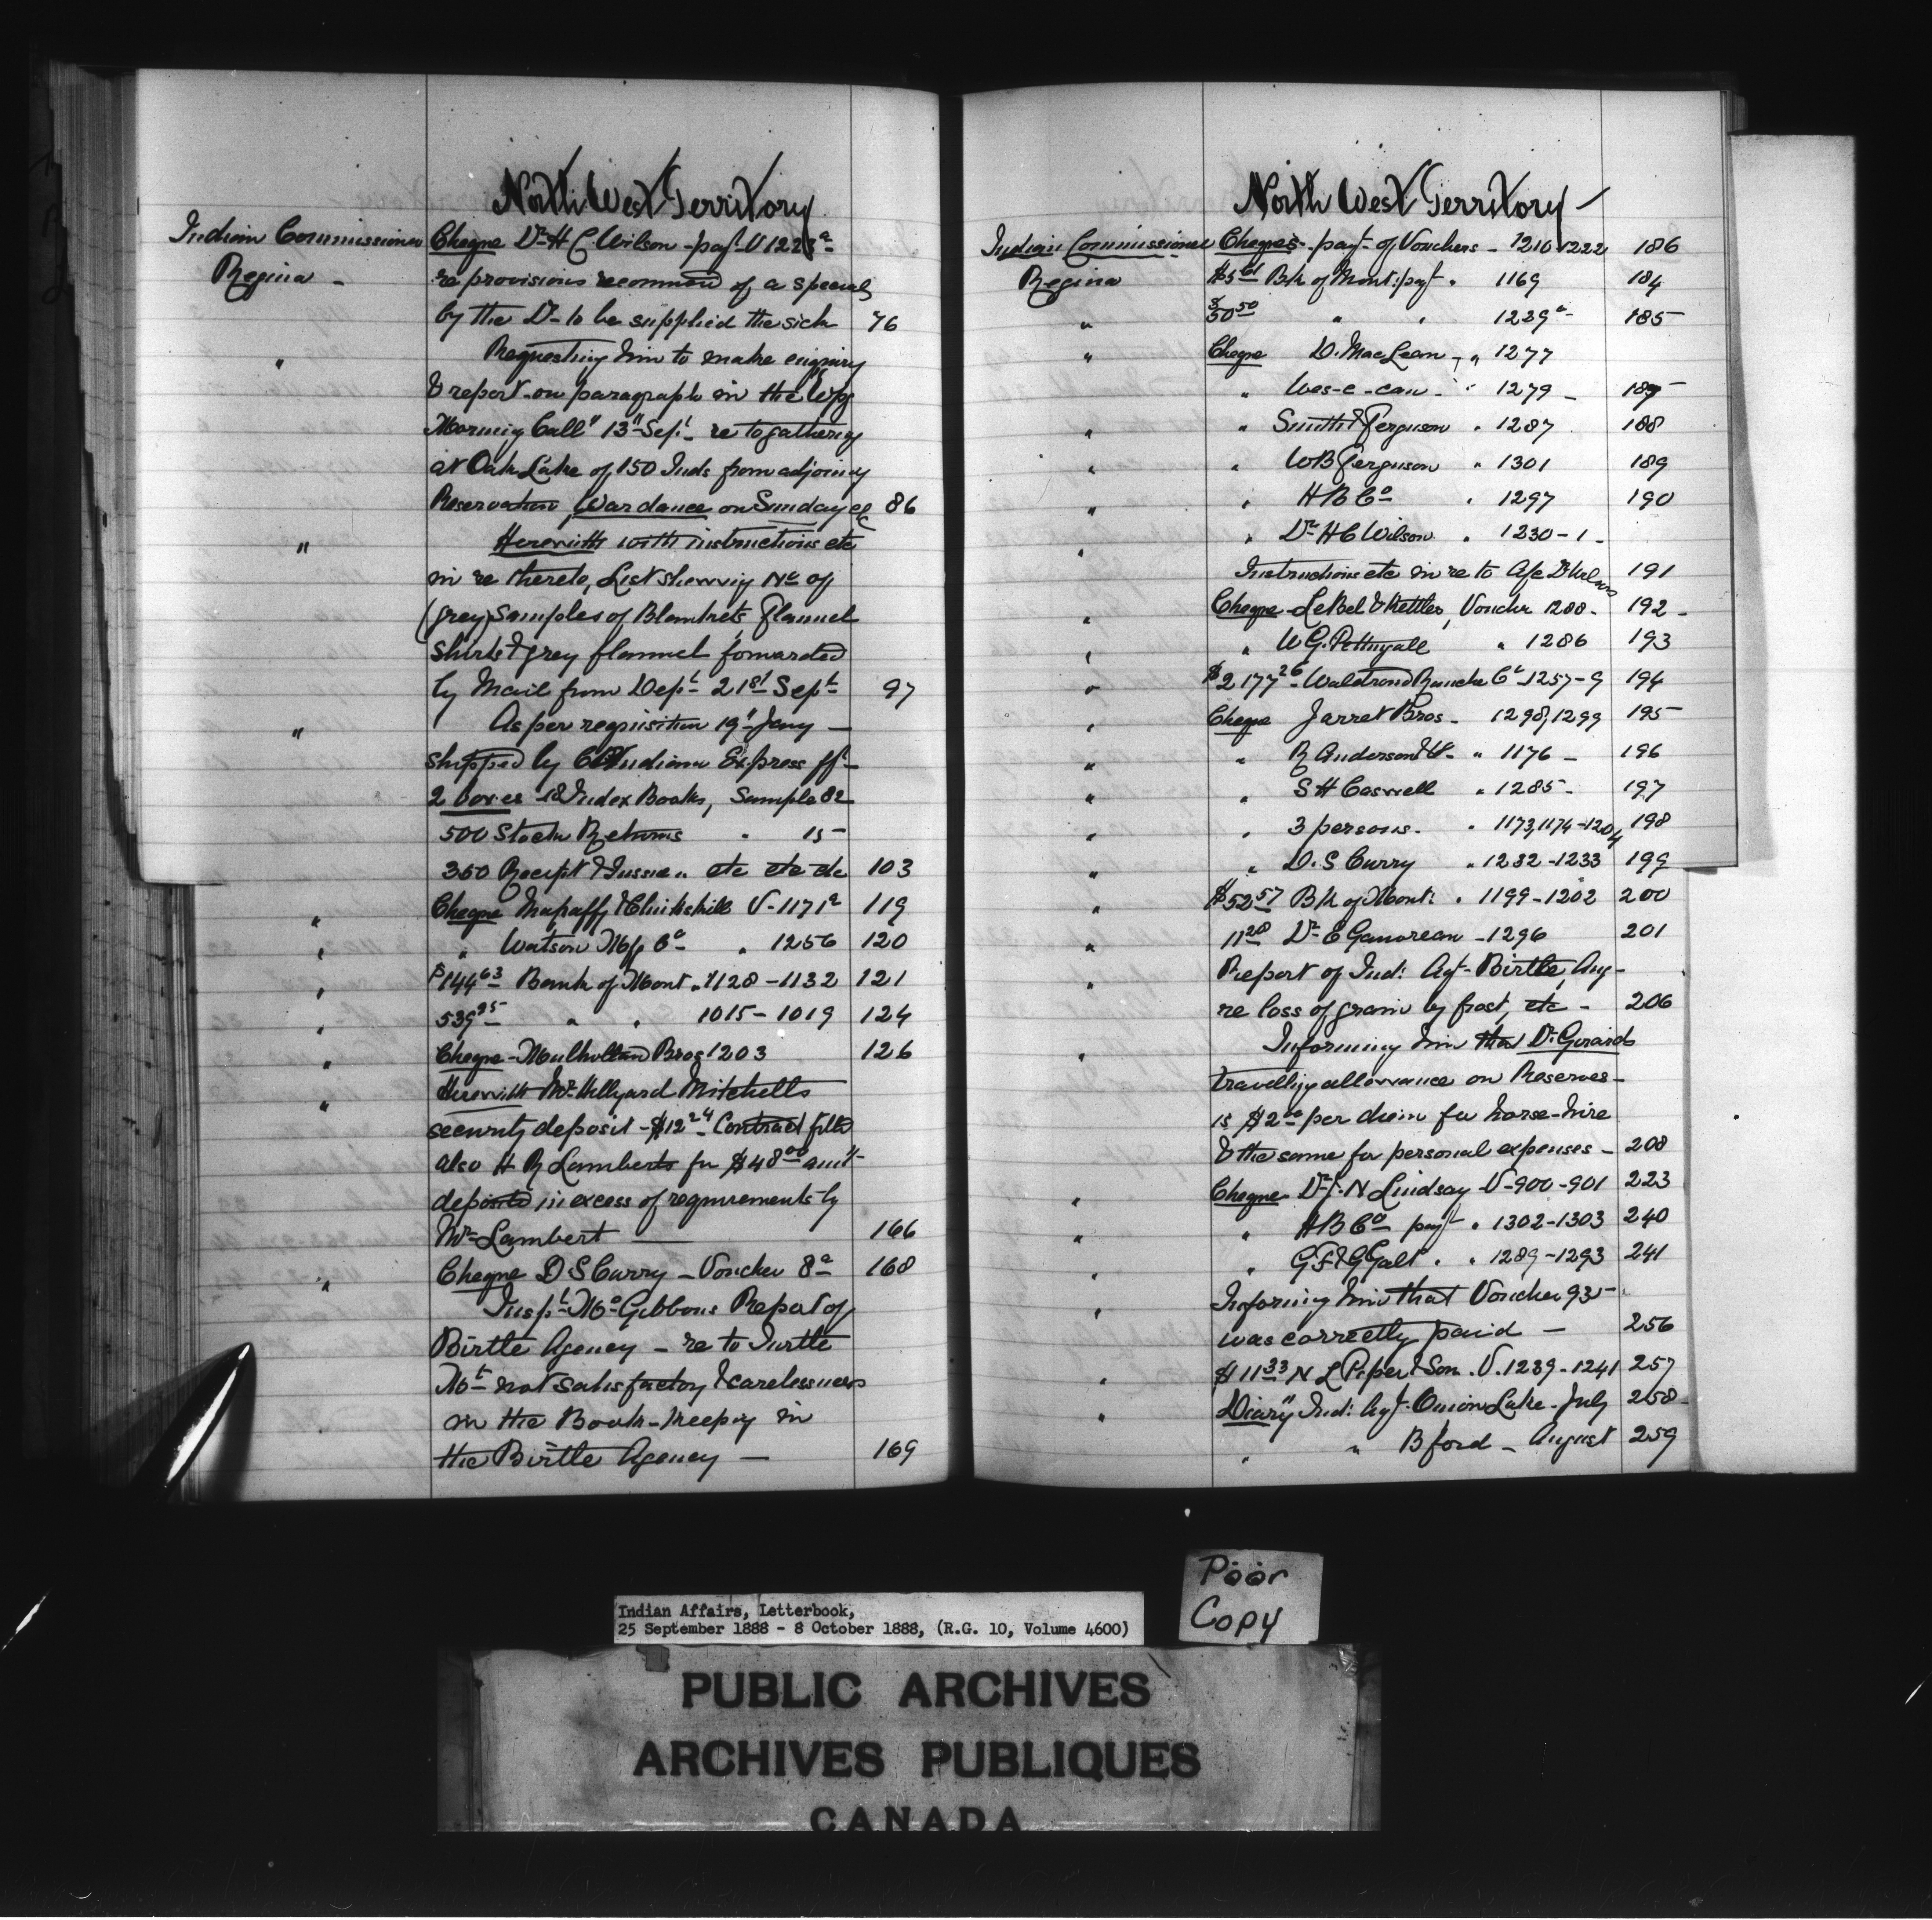 North West Territory
Indian Commissioner Cheque Dr H C Wilson - payt V 1223a
Regina - re provisions recommend of a special
by the Dr to be supplied the sick 76
" Requesting him to make enquiry
& report on paragraph in the Wpg
Morning Call" 13" Sept re to gathering
at Oak Lake of 150 Inds from adjoining
Reservation, War dance on Sunday etc 86
" Herewith with instructions etc
in re thereto, List shewing No of
(grey) Samples of Blankets, Flannel
Shirts & grey flannel forwarded
by Mail from Dept 21st Sept 97
" As per requisition 19" Jany -
shipped by Canadian Express ff -
2 boxes 18 Index Books, Sample 82
500 Stock Returns " 15 -
350 Receipt & Issue " etc etc etc 103
" Cheque Mahaffy & Clinkskill V-1171a 119
" " Watson Mfg Co " 1256 120
" $144 63 Bank of Mont " 1128-1132 121
" 539 95 " " 1015-1019 124
" Cheque - Mulholland Bros 1203 126
" Herewith Mr Hillyard Mitchells
security deposit - $12 24 Contract filled
also H R Lamberts for $48 00 amt
deposited in excess of requirements by
Mr Lambert 166
" Cheque D S Curry - Voucher 8a 168
Inspt McGibbons Report of
Birtle Agency - re to Turtle
Mt not satisfactory & carelessness
in the Book-keeping in
the Birtle Agency - 169
North West Territory -
Indian Commissioner Cheques - payt of Vouchers - 1210 1222 186
Regina $5 61 Bk of Mont: payt " 1169 184
" $50 50 " " 1239a 185
" Cheque D. MacLean - " 1277
" Wes-e-can - " 1279 - 187
" " Smith & Ferguson " 1287 188
" " W B Ferguson " 1301 189
" " H B Co " 1297 190
" " Dr H C Wilson " 1230-1 -
Instructions etc in re to A/c Dr Wilson 191
" Cheque - LeBel & Kettles, Voucher 1288 - 192 -
" " W G. Pettingall " 1286 193
" $2177 26 Waldrond Ranche Co 1257-9 194
" Cheque Jarret Bros - 1298, 1299 195
" " R Anderson & Co " 1176 - 196
" " S H Caswell " 1285 - 197
" " 3 persons. " 1173, 1174-1204 198
" " D. S Curry " 1232-1233 199
" $52 57 Bk of Mont: " 1199-1202 200
" 11 28 Dr E Gamoreau - 1296 201
" Report of Ind: Agt - Birtle, Aug -
re loss of grain by frost, etc - 206
" Informing him that Dr Girards
travelling allowance on Reserves -
is $2 00 per diem for horse-hire
& the same for personal expenses - 208
" Cheque Dr J. N Lindsay V-900-901 223
" " H B Co payt " 1302-1303 240
" " G F & G Galt " " 1289-1293 241
" Informing him that Voucher 93 -
was correctly paid - 256
" $11 33 N L Piper & Son. V. 1239-1241 257
" Diary" Ind: Agt. Onion Lake - July 258
" " B ford - August 259
Poor
Copy
Indian Affairs, Letterbook,
25 September 1888 - 8 October 1888, (R.G. 10, Volume 4600)
PUBLIC ARCHIVES
ARCHIVES PUBLIQUES
CANADA